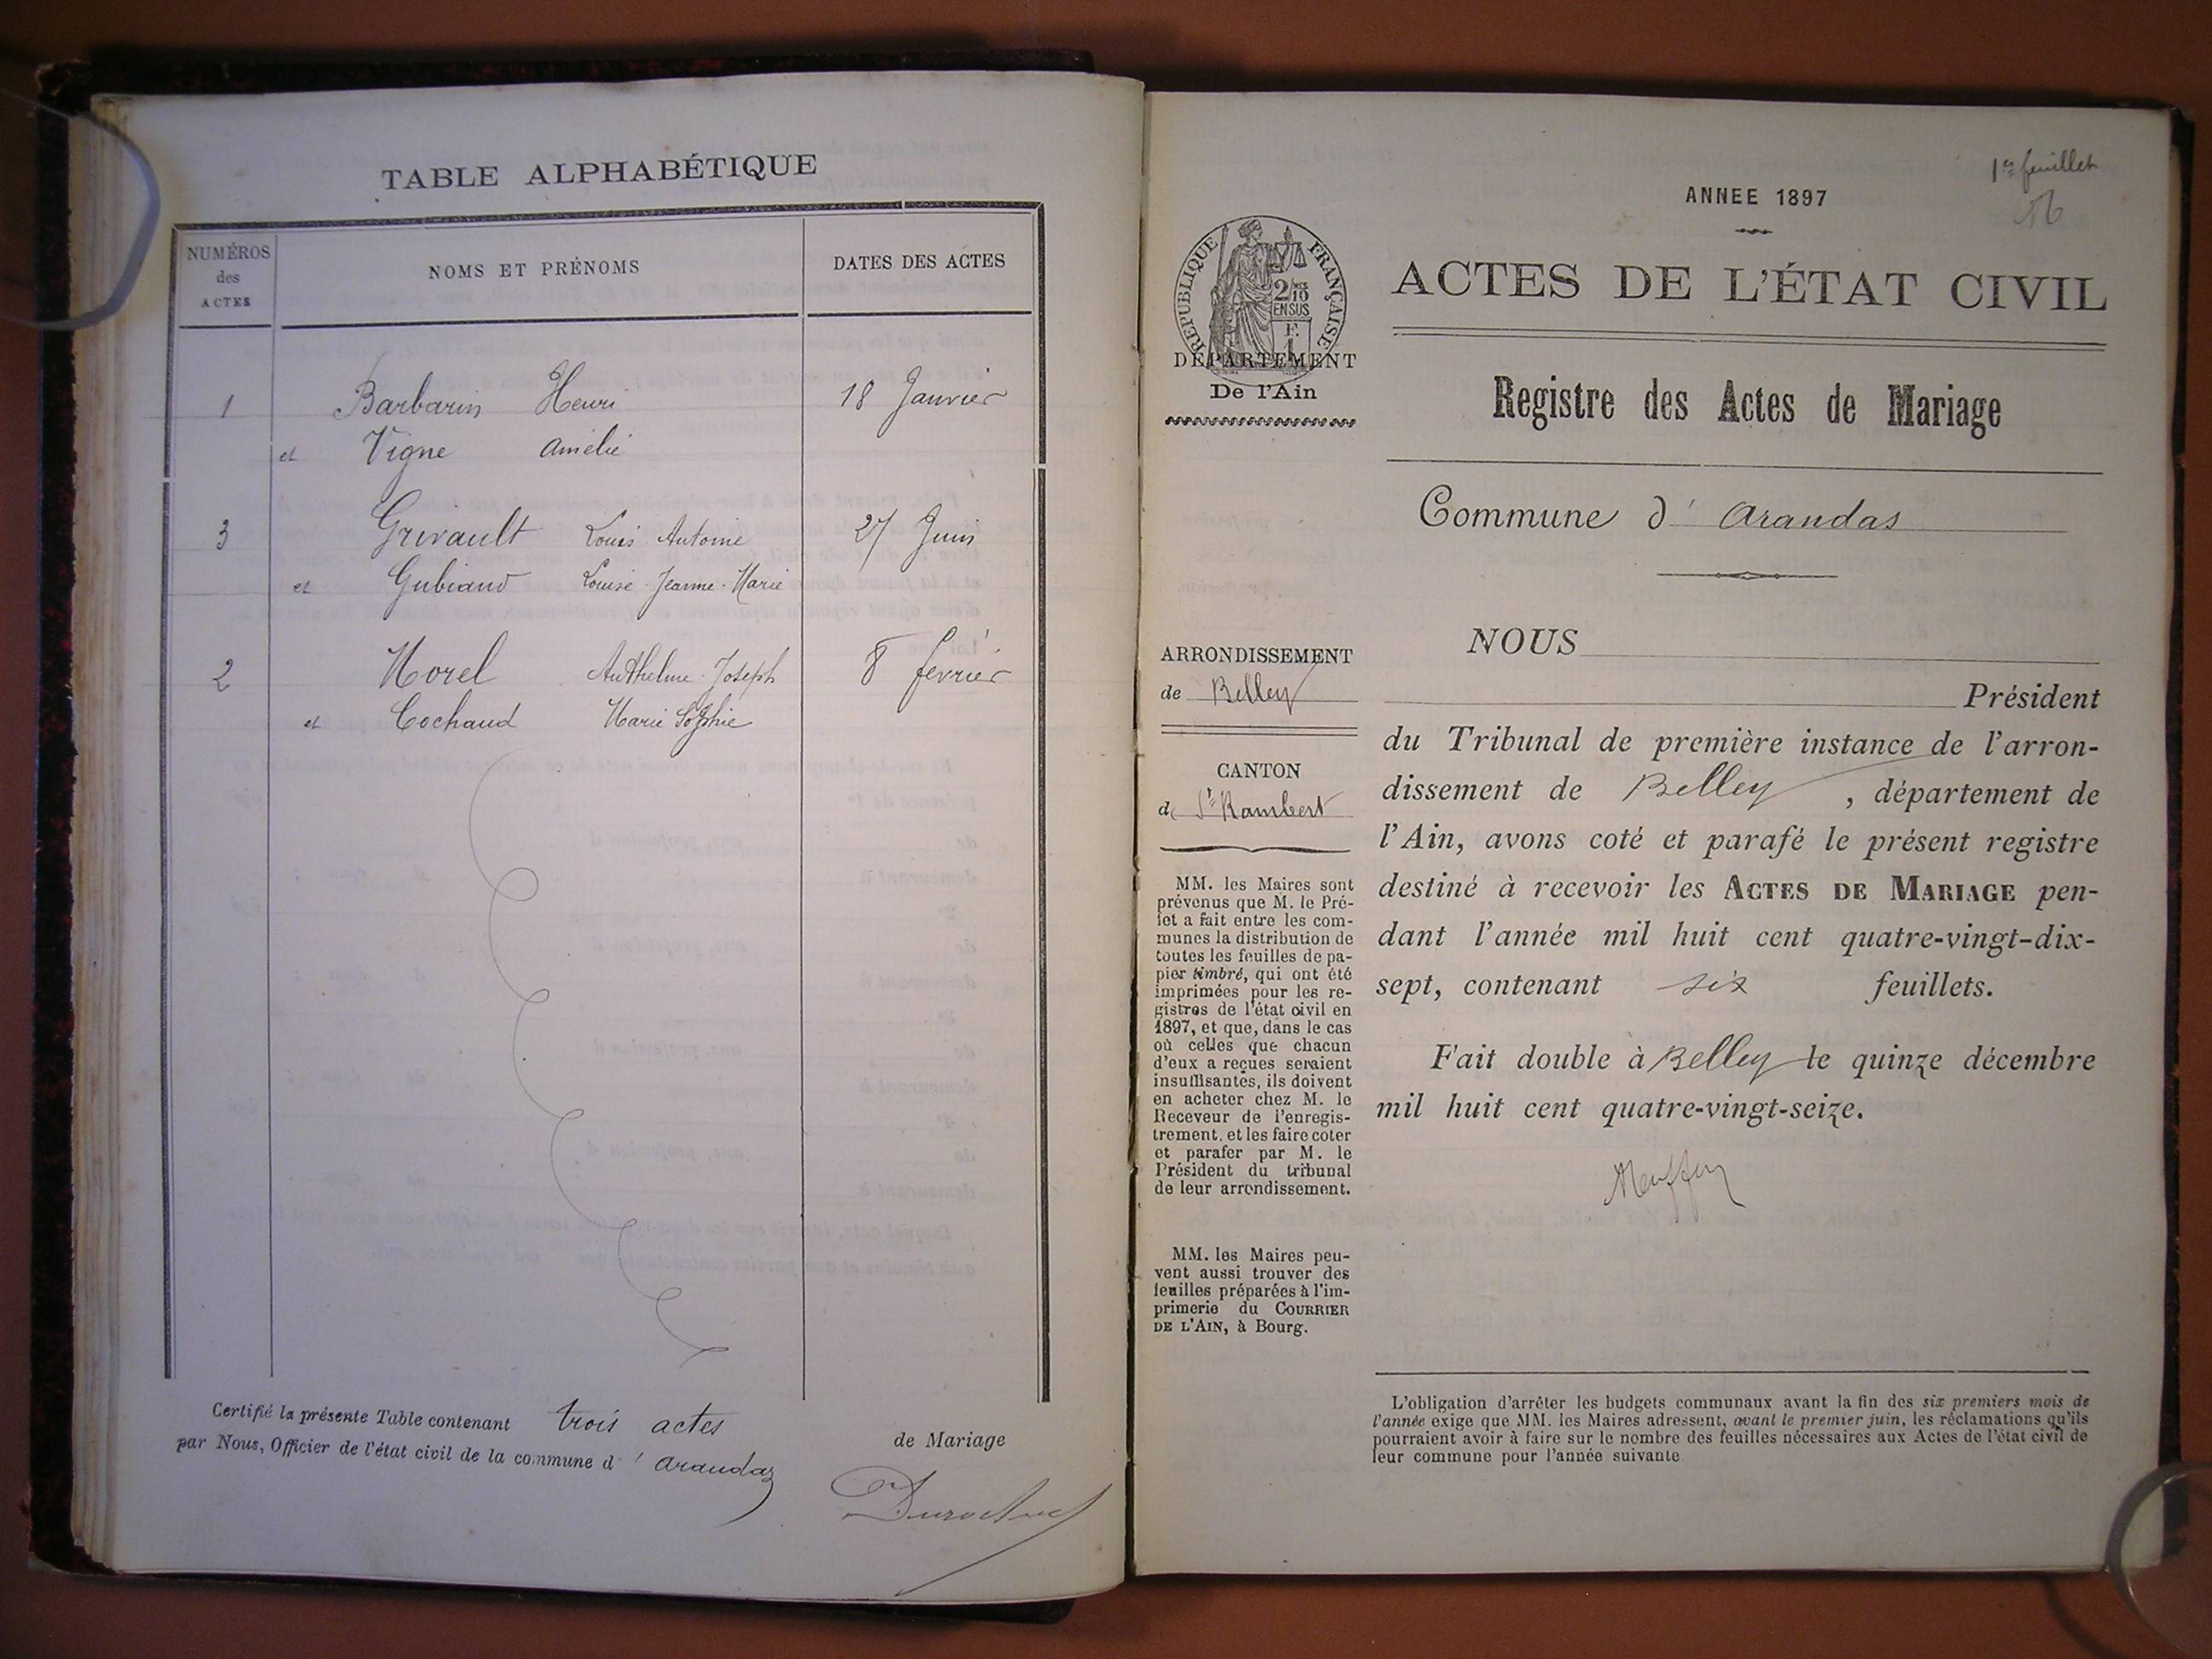 TABLE ALPHABÉTIQUE
NUMÉROS
des
ACTES
NOMS ET PRÉNOMS
DATES DES ACTES
1 Barbarin Henri 18 Janvier
et Vigne Amélie
3 Grivault Louis Antoine 27 Juin
et Gubiand Louise Jeanne Marie
2 Morel Anthelme Joseph 8 février
et Cochaud Marie Sophie
Certifié la présente Table contenant trois actes de Mariage
par Nous, Officier de l'état civil de la commune d' Arandas
1er feuillet
ANNEE 1897
RÉPUBLIQUE FRANÇAISE
2/10
EN SUS
F.
1
DÉPARTEMENT
De l'Ain
ACTES DE L'ÉTAT CIVIL
Registre des Actes de Mariage
Commune d' Arandas
ARRONDISSEMENT
de Belley
CANTON
de St Rambert
MM. les Maires sont
prévenus que M. le Pré-
fet a fait entre les com-
munes la distribution de
toutes les feuilles de pa-
pier timbré, qui ont été
imprimées pour les re-
gistres de l'état civil en
1897, et que, dans le cas
où celles que chacun
d'eux a reçues seraient
insuffisantes, ils doivent
en acheter chez M. le
Receveur de l'enregis-
trement, et les faire coter
et parafer par M. le
Président du tribunal
de leur arrondissement.
MM. les Maires peu-
vent aussi trouver des
feuilles préparées à l'im-
primerie du COURRIER
DE L'AIN, à Bourg.
NOUS
Président
du Tribunal de première instance de l'arron-
dissement de Belley , département de
l'Ain, avons coté et parafé le présent registre
destiné à recevoir les ACTES DE MARIAGE pen-
dant l'année mil huit cent quatre-vingt-dix-
sept, contenant six feuillets.
Fait double à Belley le quinze décembre
mil huit cent quatre-vingt-seize.
L'obligation d'arrêter les budgets communaux avant la fin des six premiers mois de
l'année exige que MM. les Maires adressent, avant le premier juin, les réclamations qu'ils
pourraient avoir à faire sur le nombre des feuilles nécessaires aux Actes de l'état civil de
leur commune pour l'année suivante